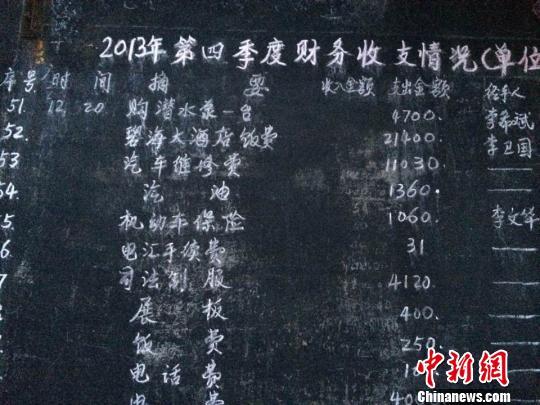 2013年第四季度财务收支情况(单位
序号 时间 摘要 收入金额 支出金额 经手人
51. 12 20 购潜水泵一台 4700. 李希斌
52. 碧海大酒店饭费 21400. 李卫国
53 汽车维修费 11030 —
54. 汽油 1360. —
5. 机动车保险 1060. 李文华
6. 电汇手续费 31 —
7 司法制服 4120. —
8 展板 400. —
饭费 250. —
电话费
费 40
中新网
www.chinanews.com